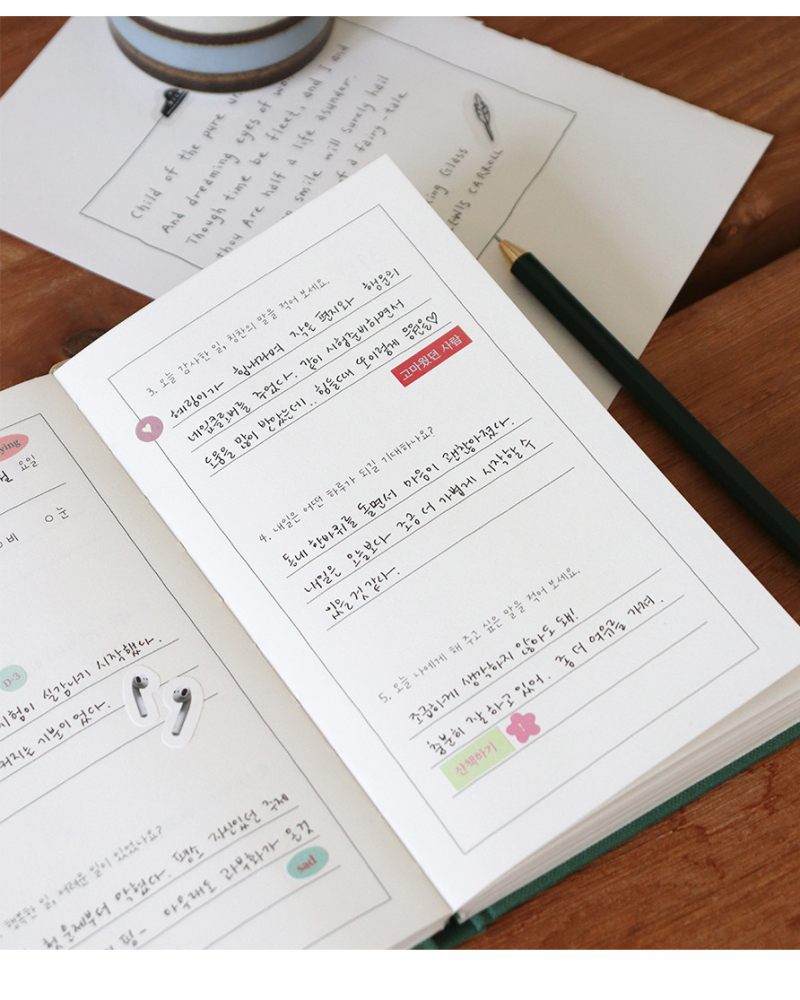 Child of the pure
And dreaming eyes of
Though time be fleet, and I and
thou Are half a life asunder,
smile will surely hail
of a fairy-tale
ing Glass
EWIS CARROLL
3. 오늘 감사한 일, 칭찬의 말을 적어 보세요.
힘내라며 작은 편지와 행운의
네잎클로버를 주었다. 같이 시험준비하면서
도움을 많이 받았는데.. 힘들때 또 이렇게 응원을♡
고마웠던 사람
4. 내일은 어떤 하루가 되길 기대하나요?
동네 한바퀴를 돌면서 마음이 괜찮아졌다.
내일은 오늘보다 조금 더 가볍게 시작할 수
있을 것 같다.
5. 오늘 나에게 해 주고 싶은 말을 적어 보세요.
조급하게 생각하지 않아도 돼!
충분히 잘 하고 있어. 좀 더 여유를 가져.
산책하기
ying
요일
비 ○눈
D-3
시험이 실감나기 시작했다.
지는 기분이었다.
행복한 일, 어려운 일이 있었나요?
평소 자신있던 주제
첫 문제부터 막혔다.
핑- 아무래도 과부화가 온것
sad